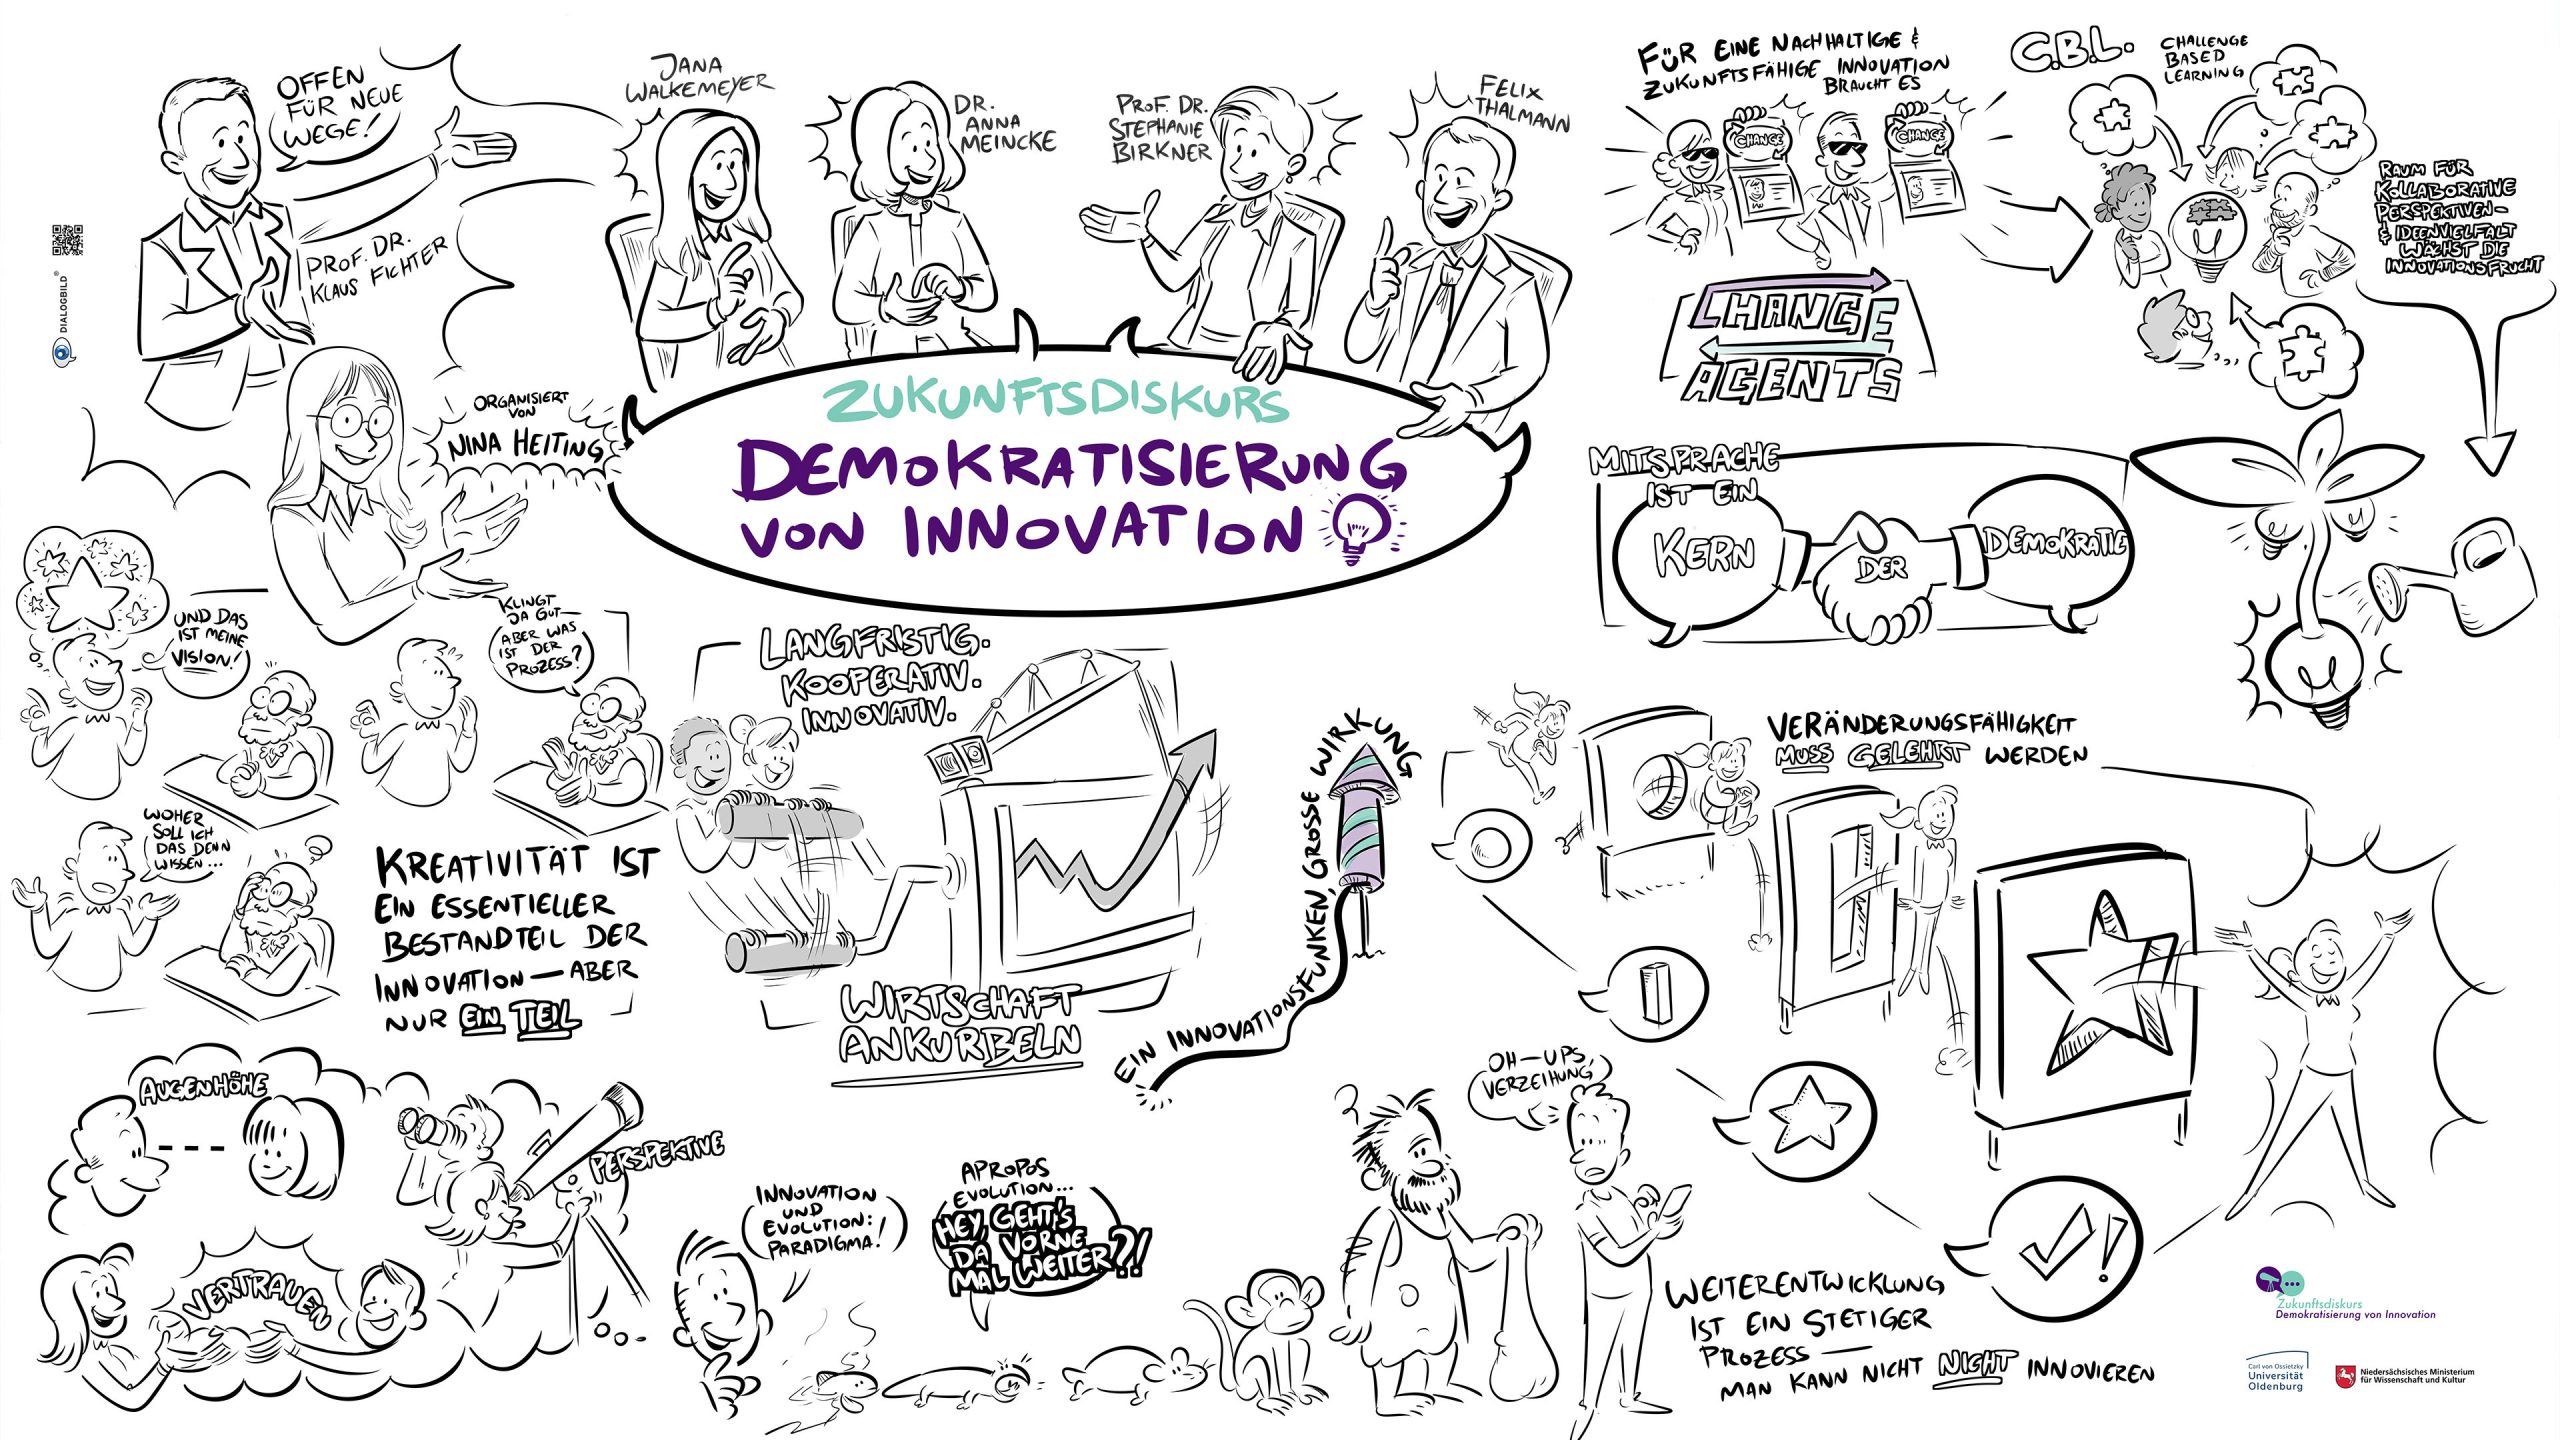 OFFEN
FÜR NEUE
WEGE!
PROF. DR.
KLAUS FICHTER
DIALOGBILD®
ORGANISIERT
VON
NINA HEITING
JANA
WALKEMEYER
DR.
ANNA
MEINCKE
PROF. DR.
STEPHANIE
BIRKNER
FELIX
THALMANN
ZUKUNFTSDISKURS
DEMOKRATISIERUNG
VON INNOVATION
FÜR EINE NACHHALTIGE &
ZUKUNFTSFÄHIGE INNOVATION
BRAUCHT ES
CHANGE
CHANGE
CHANGE
AGENTS
C.B.L.
CHALLENGE
BASED
LEARNING
RAUM FÜR
KOLLABORATIVE
PERSPEKTIVEN-
& IDEENVIELFALT
WÄCHST DIE
INNOVATIONSFRUCHT
MITSPRACHE
IST EIN
KERN
DER
DEMOKRATIE
UND DAS
IST MEINE
VISION!
KLINGT
JA GUT
ABER WAS
IST DER
PROZESS?
WOHER
SOLL ICH
DAS DENN
WISSEN...
KREATIVITÄT IST
EIN ESSENTIELLER
BESTANDTEIL DER
INNOVATION — ABER
NUR EIN TEIL
LANGFRISTIG.
KOOPERATIV.
INNOVATIV.
WIRTSCHAFT
ANKURBELN
EIN INNOVATIONSFUNKEN, GROSSE WIRKUNG
VERÄNDERUNGSFÄHIGKEIT
MUSS GELEHRT WERDEN
AUGENHÖHE
PERSPEKTIVE
VERTRAUEN
INNOVATION
UND
EVOLUTION:
PARADIGMA!
APROPOS
EVOLUTION...
HEY, GEHT'S
DA VORNE
MAL WEITER?!
OH-UPS,
VERZEIHUNG
WEITERENTWICKLUNG
IST EIN STETIGER
PROZESS —
MAN KANN NICHT NICHT INNOVIEREN
Zukunftsdiskurs
Demokratisierung von Innovation
Carl von Ossietzky
Universität
Oldenburg
Niedersächsisches Ministerium
für Wissenschaft und Kultur